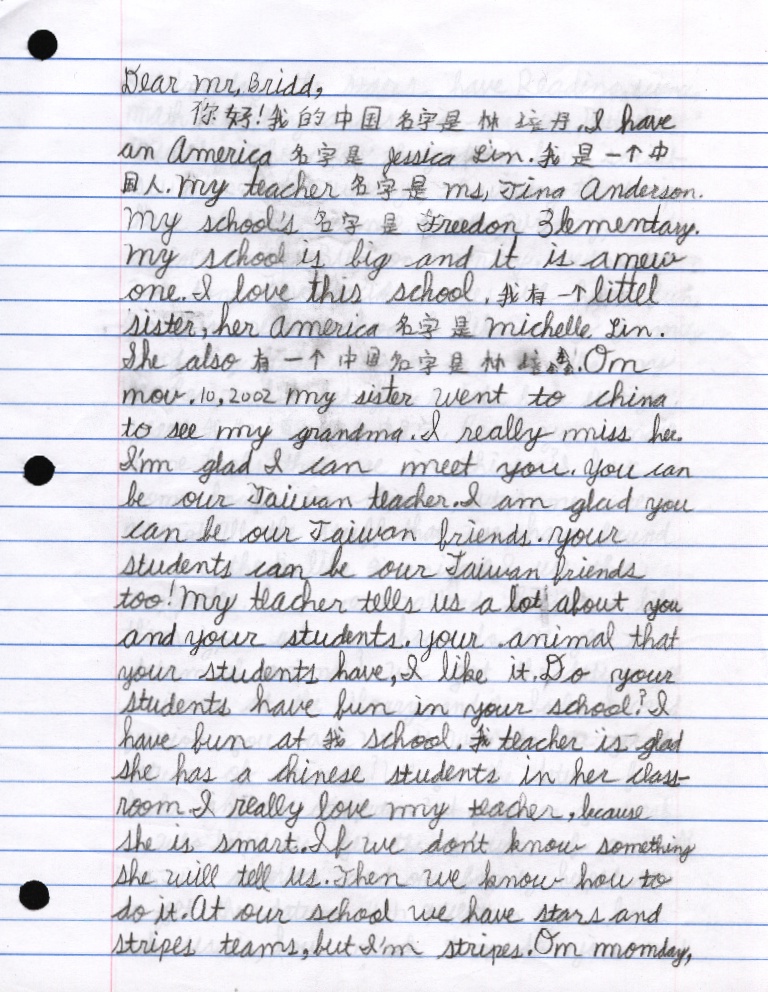 Dear Mr. Bridd,
你好!我的中国名字是林 丹. I have
an America 名字是 Jessica Lin. 我是一个中
国人. My teacher 名字是 Ms. Tina Anderson.
My school's 名字是 Freedon Elementary.
My school is big and it is a new
one. I love this school. 我有一个littel
sister, her America 名字是 Michelle Lin.
She also 有一个中国名字是林 . On
Nov. 10, 2002 my sister went to china
to see my grandma. I really miss her.
I'm glad I can meet you. You can
be our Taiwan teacher. I am glad you
can be our Taiwan friends. your
students can be our Taiwan friends
too! My teacher tells us a lot about you
and your students. your animal that
your students have, I like it. Do your
students have fun in your school? I
have fun at 我 school. 我 teacher is glad
she has a chinese students in her class-
room. I really love my teacher, because
she is smart. If we don't know something
she will tell us. Then we know how to
do it. At our school we have stars and
stripes teams, but I'm stripes. On monday,